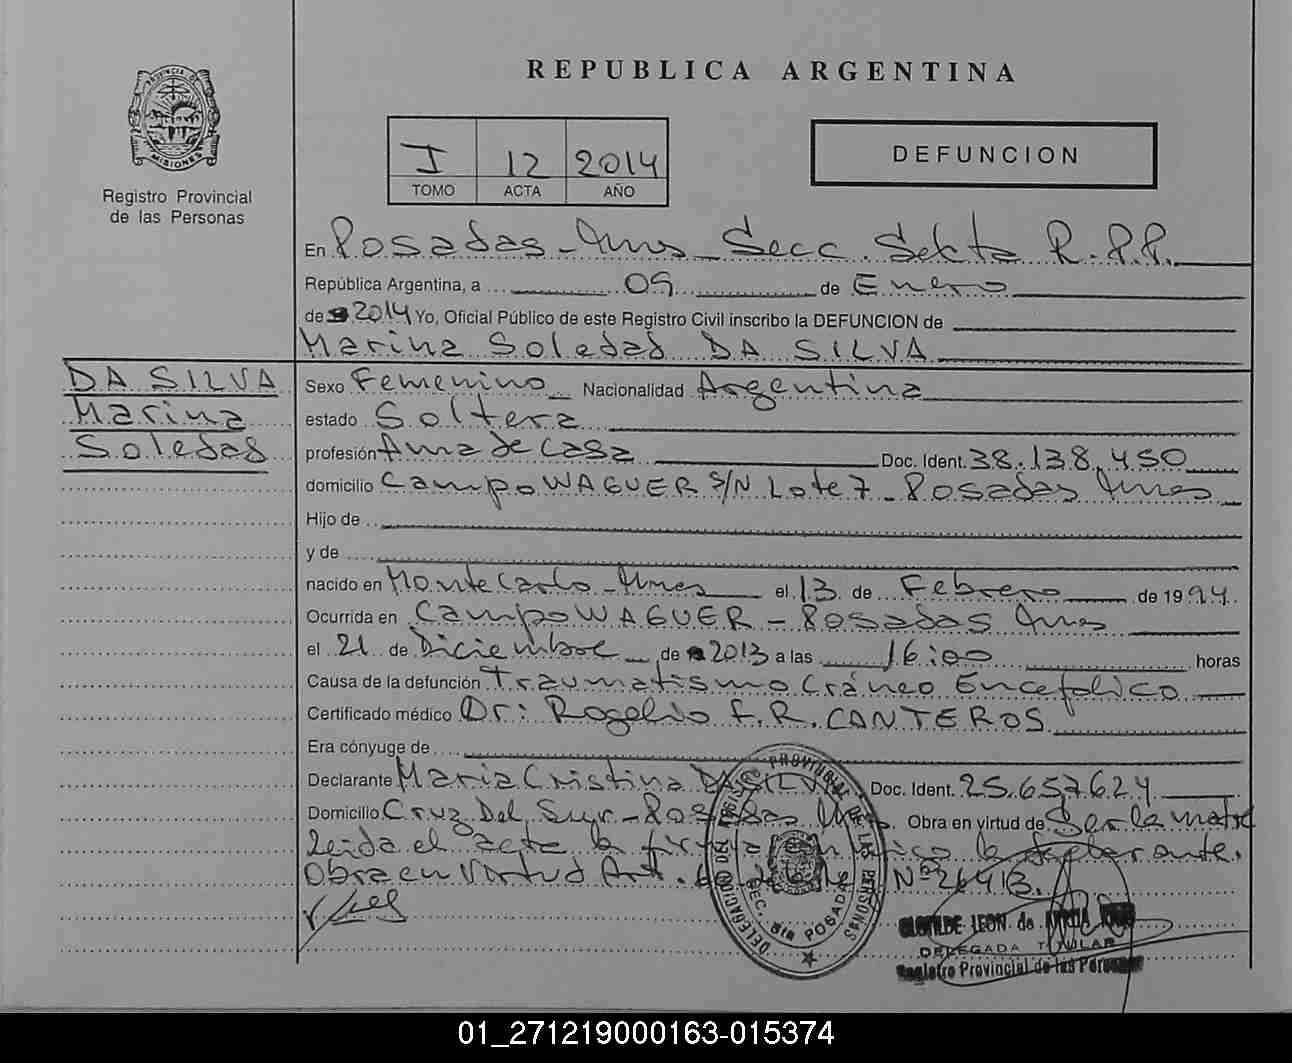 REPUBLICA ARGENTINA
PROVINCIA DE
MISIONES
Registro Provincial
de las Personas
I 12 2014
TOMO ACTA AÑO
DEFUNCION
En Posadas - Mnes Secc. Sexta R.P.P.
República Argentina, a 09 de Enero
de 2014 Yo, Oficial Público de este Registro Civil inscribo la DEFUNCION de
Marina Soledad DA SILVA
DA SILVA
Marina
Soledad
Sexo Femenino Nacionalidad Argentina
estado Soltera
profesión Ama de casa Doc. Ident. 38.138.450
domicilio Campo WAGUER S/N Lote 7 - Posadas Mnes
Hijo de
y de
nacido en Montecarlo - Mnes el 13 de Febrero de 1994
Ocurrida en Campo WAGUER - Posadas Mnes
el 21 de Diciembre de 2013 a las 16:00 horas
Causa de la defunción Traumatismo Cráneo Encefálico
Certificado médico Dr: Rogelio F.R. CANTEROS
Era cónyuge de
Declarante Maria Cristina DA SILVA Doc. Ident. 25.657.624
Domicilio Cruz Del Sur - Posadas Mnes. Obra en virtud de Ser la madre
Leida el acta la firma conmigo la declarante.
Obra en Virtud Art. de la Ley Nº 26413.
DELEGACION DEL REGISTRO PROVINCIAL DE LAS PERSONAS
SEC. 6ta POSADAS
CLOTILDE LEON de
DELEGADA TITULAR
Registro Provincial de las Personas
01_271219000163-015374